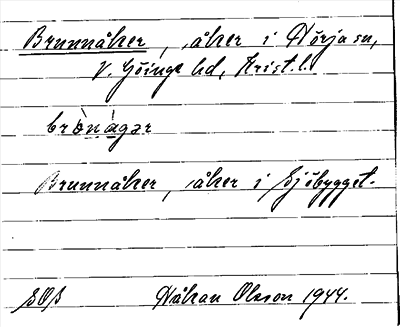 Brunnåker, åker i Hörja sn,
V. Göinge hd, Krist. l.
brònàgər
Brunnåker, åker i Sjöbygget.
Håkan Olsson 1944.